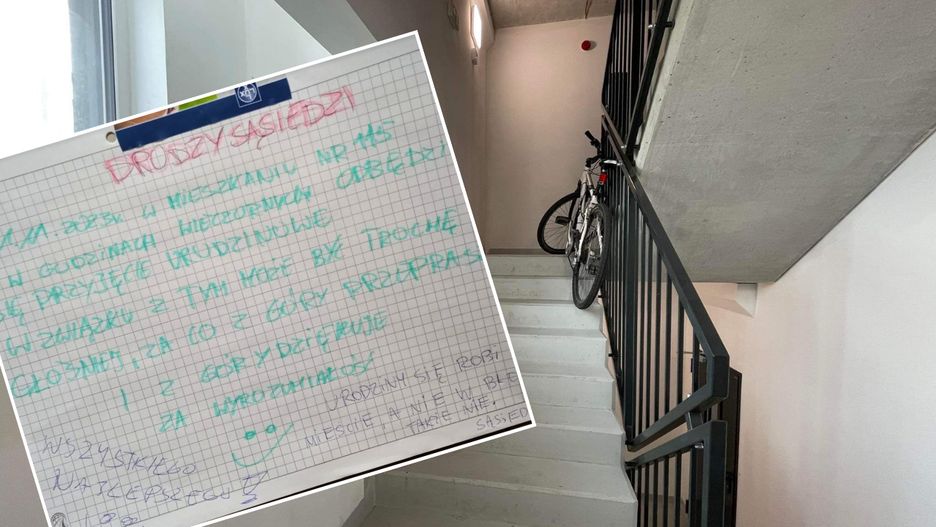 DRODZY SĄSIEDZI
11.2023r. W MIESZKANIU NR 115
W GODZINACH WIECZORNYCH ODBĘDZIE
SIĘ PRZYJĘCIE URODZINOWE
W ZWIĄZKU Z TYM MOŻE BYĆ TROCHĘ
GŁOŚNIEJ, ZA CO Z GÓRY PRZEPRASZ
I Z GÓRY DZIĘKUJE
ZA WYROZUMIAŁOŚĆ
URODZINY SIĘ ROBI
MIEŚCIE, A N E W BLO
TAKŻE NIE.
SĄSIED
WSZYSTKIEGO
NAJLEPSZEGO